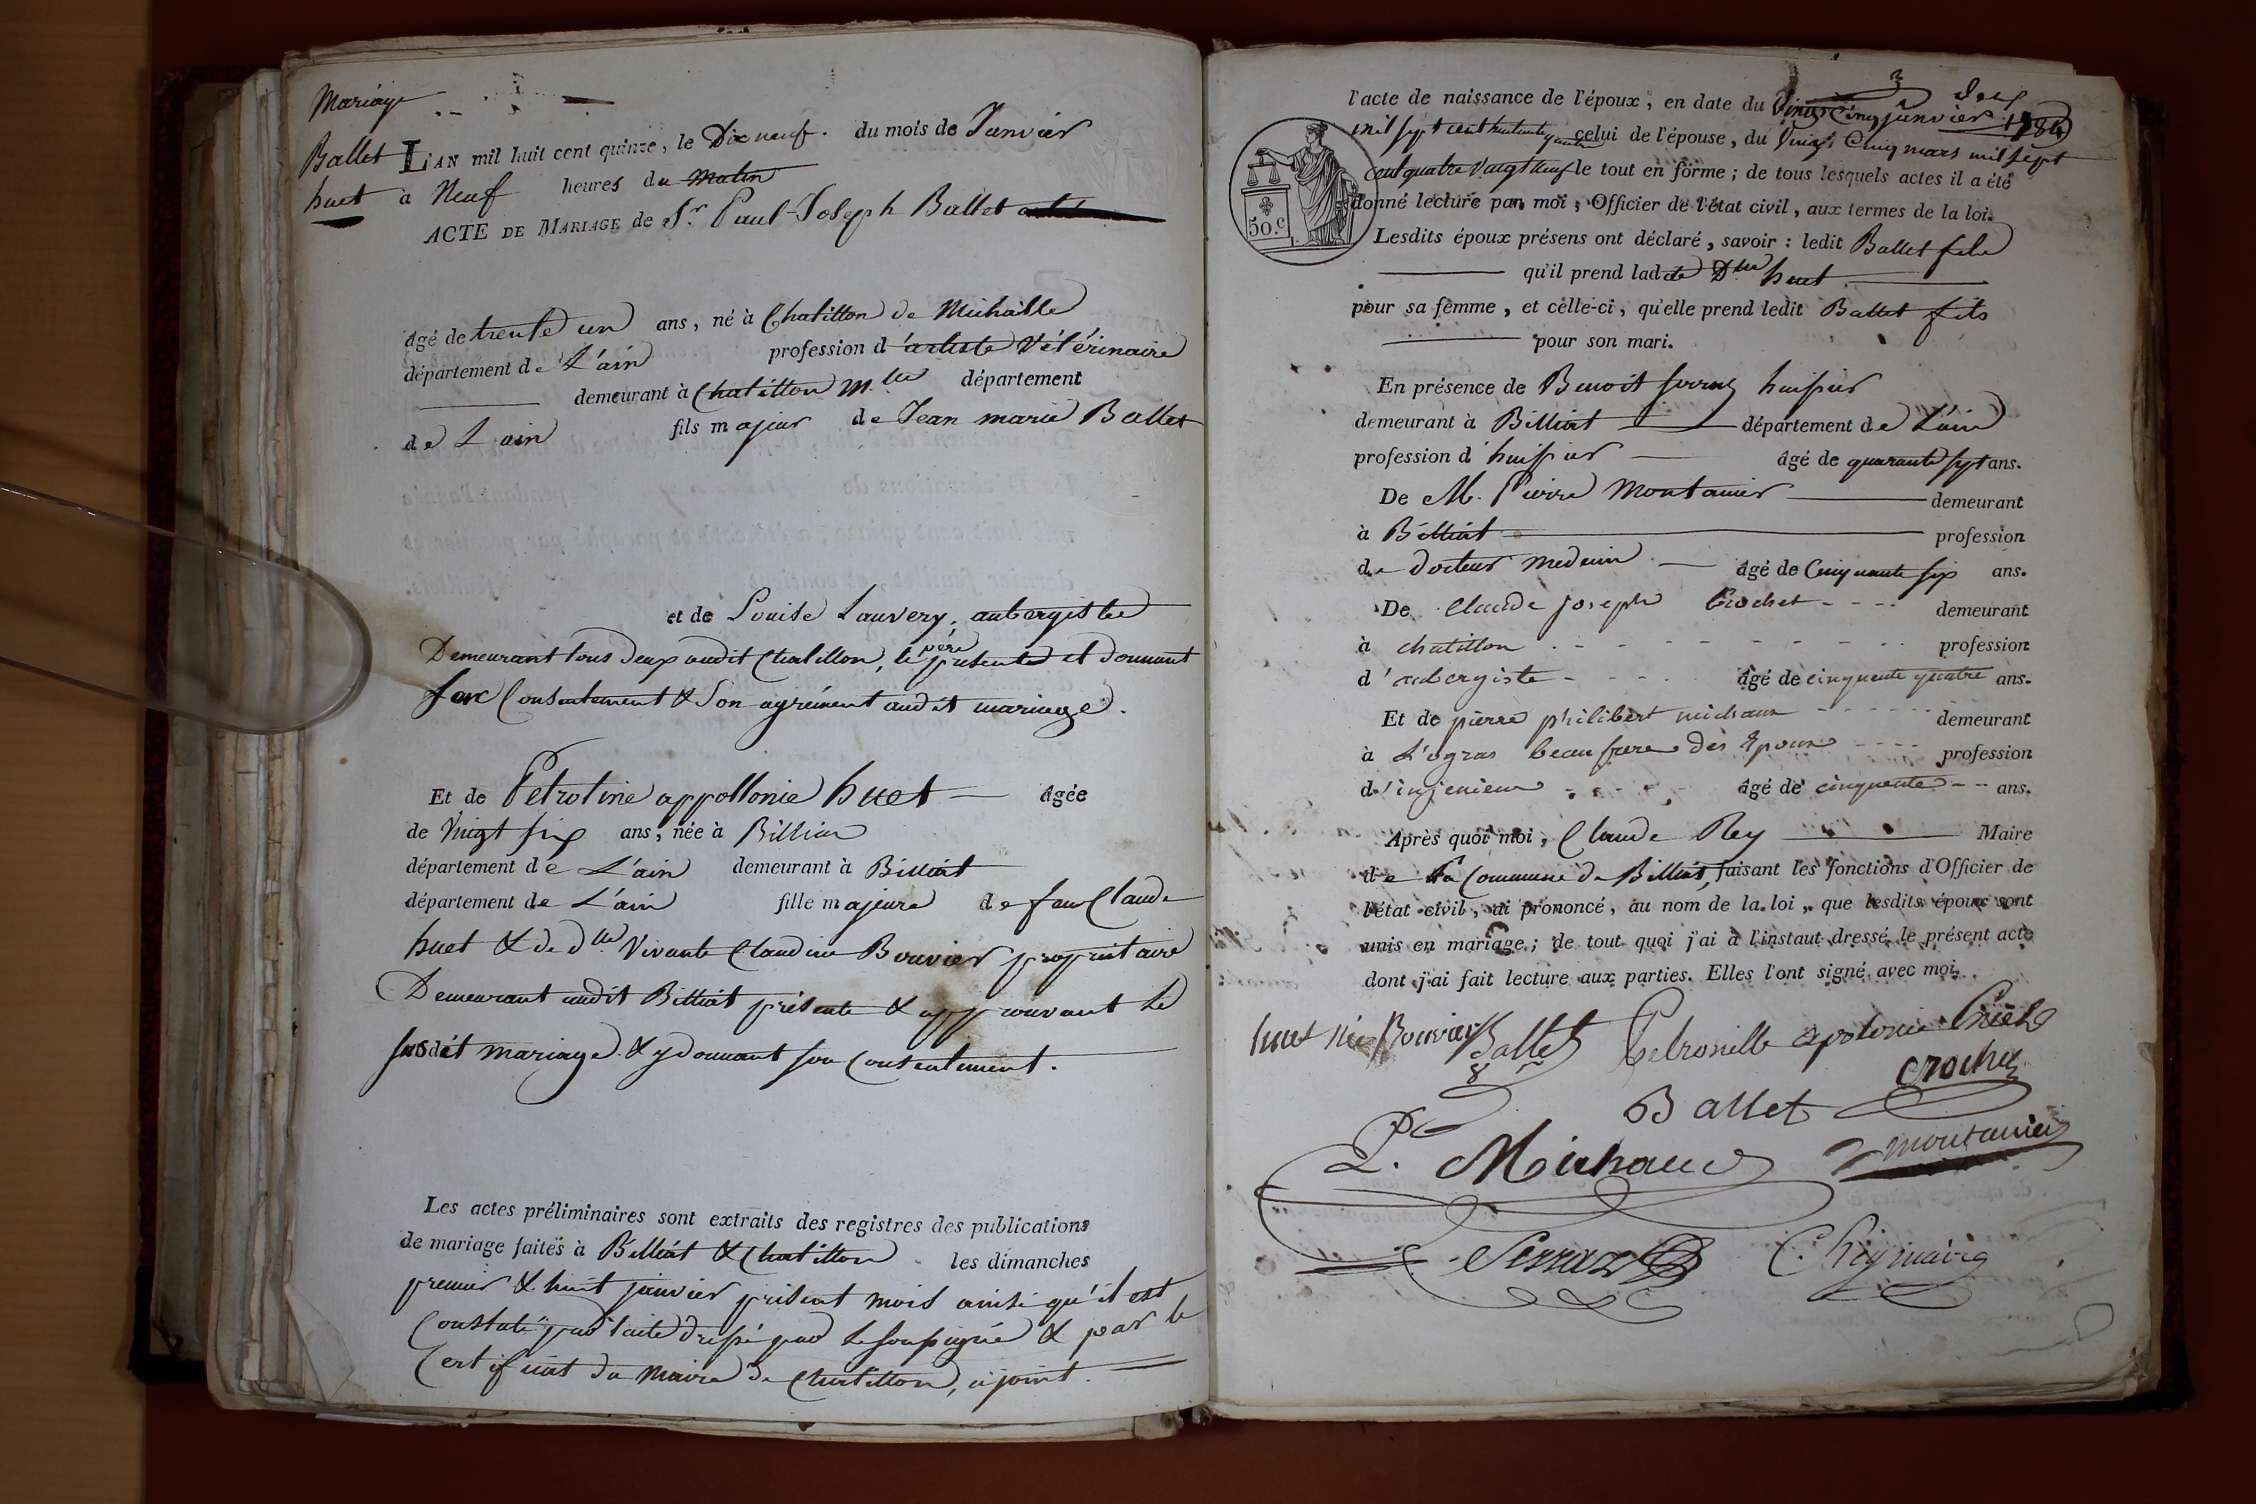 Mariage
Ballet
huet
L'AN mil huit cent quinze, le Dix neuf. du mois de Janvier
à Neuf heures du Matin
ACTE DE MARIAGE de Sr. Paul-Joseph Ballet
âgé de trente un ans, né à Chatillon de Michaille
département de L'ain profession d'artiste Vétérinaire
demeurant à Chatillon M.lle département
de L'ain fils majeur de Jean marie Ballet
et de Louise Lauvery, aubergistes
Demeurant tous deux audit Chatillon, le père présent et donnant
son Consentement & Son agrément audit mariage.
Et de Petroline appollonie huet âgée
de Vingt six ans, née à Billiat
département de L'ain demeurant à Billiat
département de L'ain fille majeure de feu Claude
huet & de dlle Vivante Claudine Bouvier propriétaire
Demeurant audit Billiat présente & approuvant le
susdit mariage & y donnant son Consentement.
Les actes préliminaires sont extraits des registres des publications
de mariage faites à Billiat & Chatillon les dimanches
premier & huit janvier présent mois ainsi qu'il est
Constaté par l'acte dressé par le soussigné & par le
Certificat du Maire de Chatillon, ci joint.
l'acte de naissance de l'époux, en date du Vingt Cinq janvier 1784
mil sept cent huitante quatre celui de l'épouse, du Vingt Cinq mars mil sept
Cent quatre Vingt neuf le tout en forme; de tous lesquels actes il a été
donné lecture par moi, Officier de l'état civil, aux termes de la loi.
50.c
Lesdits époux présens ont déclaré, savoir: ledit Ballet fils
qu'il prend ladite Dlle huet
pour sa femme, et celle-ci, qu'elle prend ledit Ballet fils
pour son mari.
En présence de Benoit Serraz huissier
demeurant à Billiat département de L'ain
profession d'huissier âgé de quarante sept ans.
De M. Pierre Montanier demeurant
à Billiat profession
de docteur medecin âgé de Cinquante six ans.
De Claude joseph Crochet demeurant
à chatillon profession
d'aubergiste âgé de cinquente quatre ans.
Et de pierre philibert michaux demeurant
à L'ogras beau frere des Epoux profession
d'injenieur âgé de cinquente ans.
Après quoi moi, Claude Rey Maire
de la Commune de Billiat, faisant les fonctions d'Officier de
l'état civil, ai prononcé, au nom de la loi, que lesdits époux sont
unis en mariage; de tout quoi j'ai à l'instant dressé le présent acte
dont j'ai fait lecture aux parties. Elles l'ont signé avec moi.
huet née Bouvier Ballet Petronille apolonie huet
crochet
Ballet
P. Michaud montanier
Serraz C. Rey maire